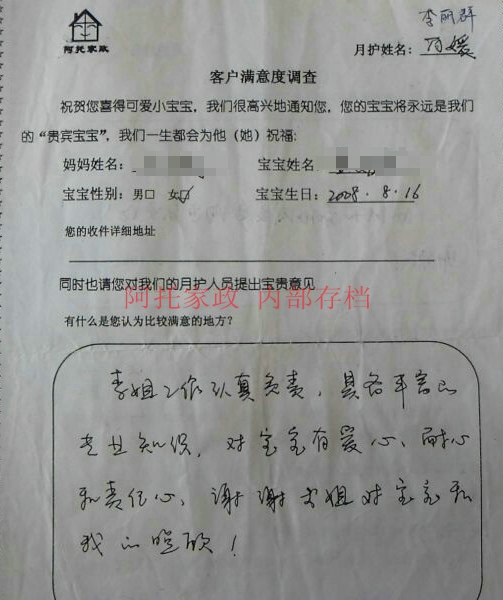 李丽群
阿托家政
月护姓名:
客户满意度调查
祝贺您喜得可爱小宝宝,我们很高兴地通知您,您的宝宝将永远是我们
的“贵宾宝宝”,我们一生都会为他(她)祝福:
妈妈姓名: 宝宝姓名
宝宝性别: 男口 女口 宝宝生日: 2008.8.16
您的收件详细地址
同时也请您对我们的月护人员提出宝贵意见
阿托家政 内部存档
有什么是您认为比较满意的地方?
李姐工作认真负责,具备丰富的
专业知识,对宝宝有爱心、耐心
和责任心,谢谢李姐对宝宝和
我的照顾!